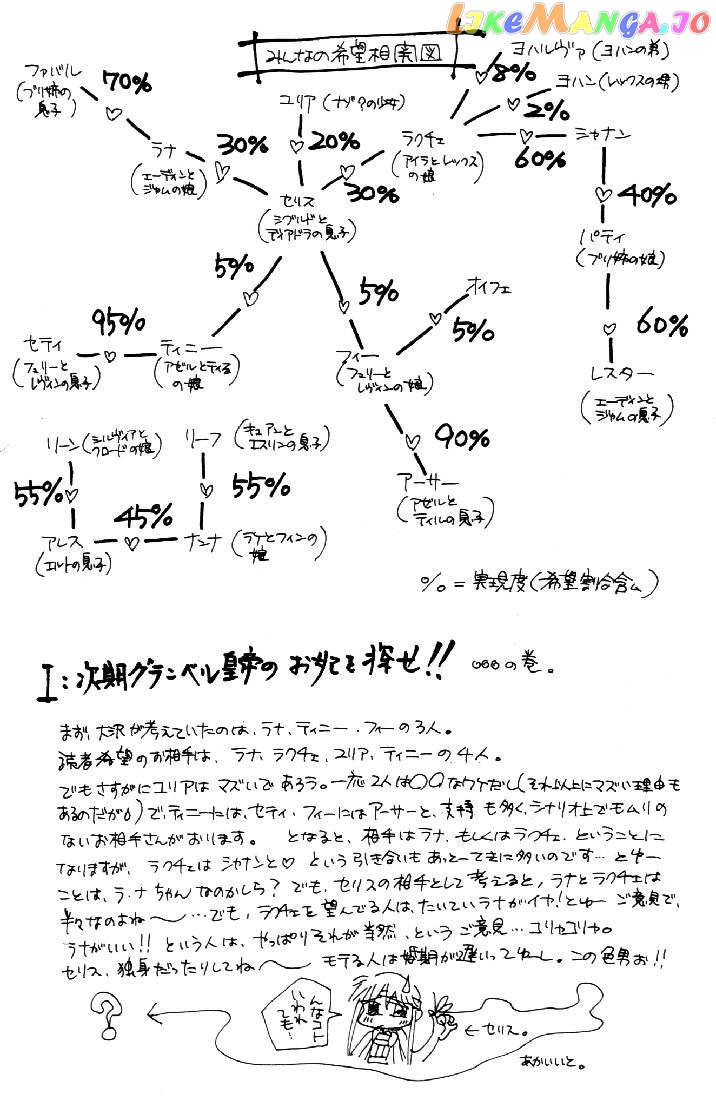 LIKEMANGA.IO
みんなの希望相関図
ヨハルヴァ(ヨハンの弟)
8%
ファバル
(ブリ姉の
息子)
70%
ユリア(ナゾ?の少女)
ヨハン(レックスの甥)
2%
ラナ
(エーディンと
ジャムの娘)
30%
20%
ラクチェ
(アイラとレックス
の娘)
シャナン
60%
30%
セリス
(シグルドと
ディアドラの息子)
40%
パティ
(ブリ姉の娘)
5%
5%
オイフェ
5%
95%
セティ
(フュリーと
レヴィンの息子)
ティニー
(アゼルとティルテュ
の娘)
フィー
(フュリーと
レヴィンの娘)
60%
レスター
(エーディンと
ジャムの息子)
リーン(シルヴィアと
クロードの娘)
リーフ
(キュアンと
エスリンの息子)
90%
55%
55%
アーサー
(アゼルと
ティルの息子)
45%
アレス
(エルトの息子)
ナンナ
(ラケとフィンの
娘)
%=実現度(希望割合含ム)
I:次期グランベル皇帝の お妃を探せ!! 。。。の巻。
まず、大沢が考えていたのは、ラナ、ティニー、フィーの3人。
読者希望のお相手は、ラナ、ラクチェ、ユリア、ティニーの4人。
でもさすがにユリアはマズいであろう。一応2人は〇〇なワケだし(それ以上にマズい理由も
あるのだが)で、ティニーには、セティ、フィーにはアーサーと、支持も多く、シナリオ上でもムリの
ないお相手さんがおります。 となると、相手はラナ、もしくはラクチェ、ということに
なりますが、ラクチェはシャナンと♡という引き合いもあっとーてきに多いのです…とゆー
ことは、ラ、ナちゃんなのかしら?でも、セリスの相手として考えると、ラナとラクチェは
半々なのよね〜…でも、ラクチェを望んでる人は、たいていラナがイヤ!とゆーご意見で、
ラナがいい!!という人は、やっぱりそれが当然、というご意見…コリャコリャ。
セリス、独身だったりしてね〜 モテる人は婚期が遅いってゆーし。この色男お!!
んなコト
いわれ
ても…
?
←セリス。
あかいいと。